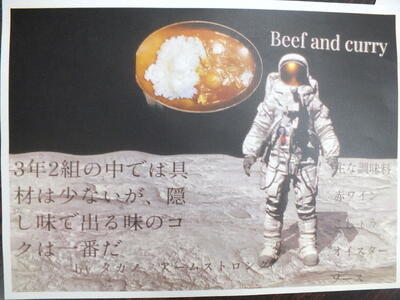 Beef and curry
3年2組の中では具
材は少ないが、隠
し味で出る味のコ
クは一番だ
by タカノ・アームストロング
主な調味料
赤ワイン
オイスター
ソース